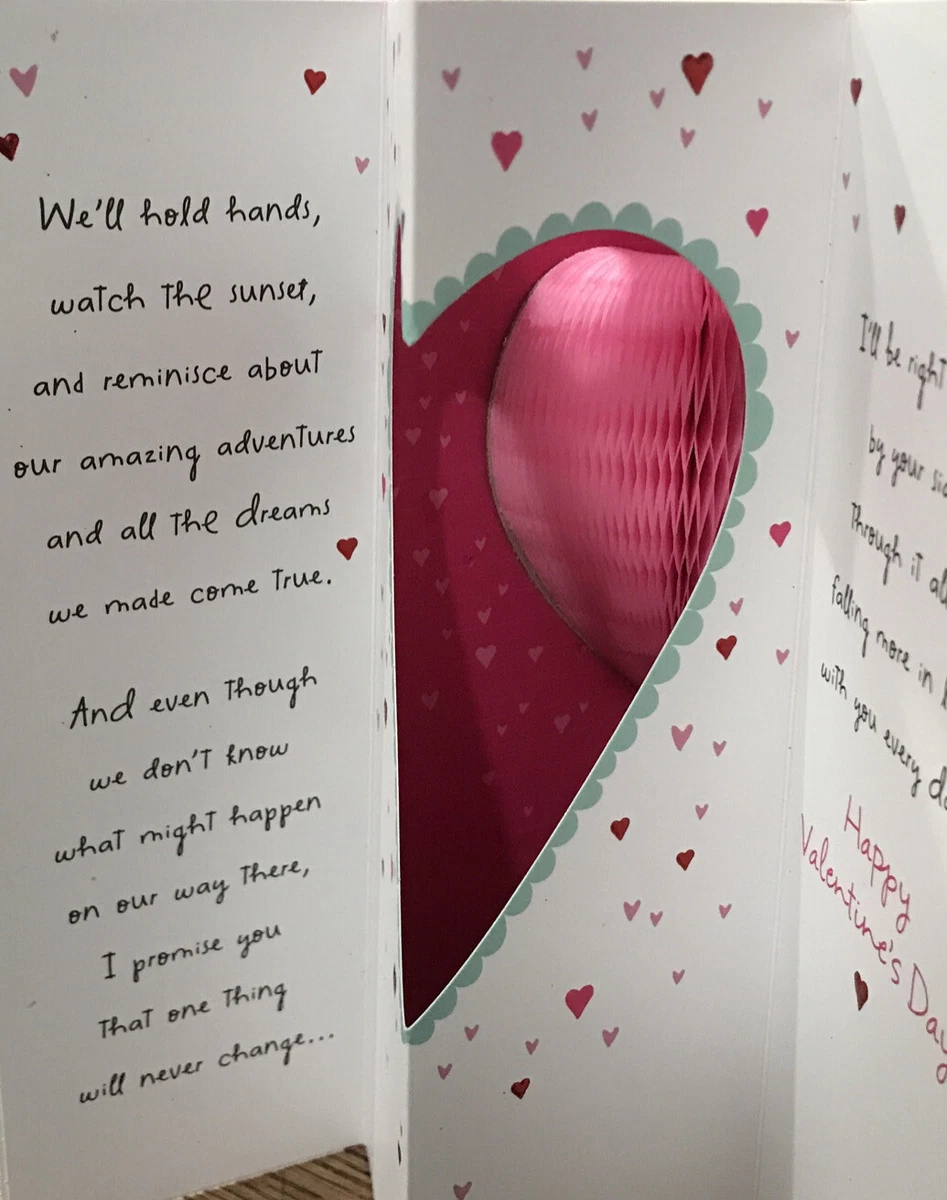 We'll hold hands,
watch the sunset,
and reminisce about
our amazing adventures
and all the dreams
we made come true.
And even though
we don't know
what might happen
on our way there,
I promise you
that one thing
will never change...
I'll be right
by your
Through it
falling more in
with you every
Happy
Valentine's Day